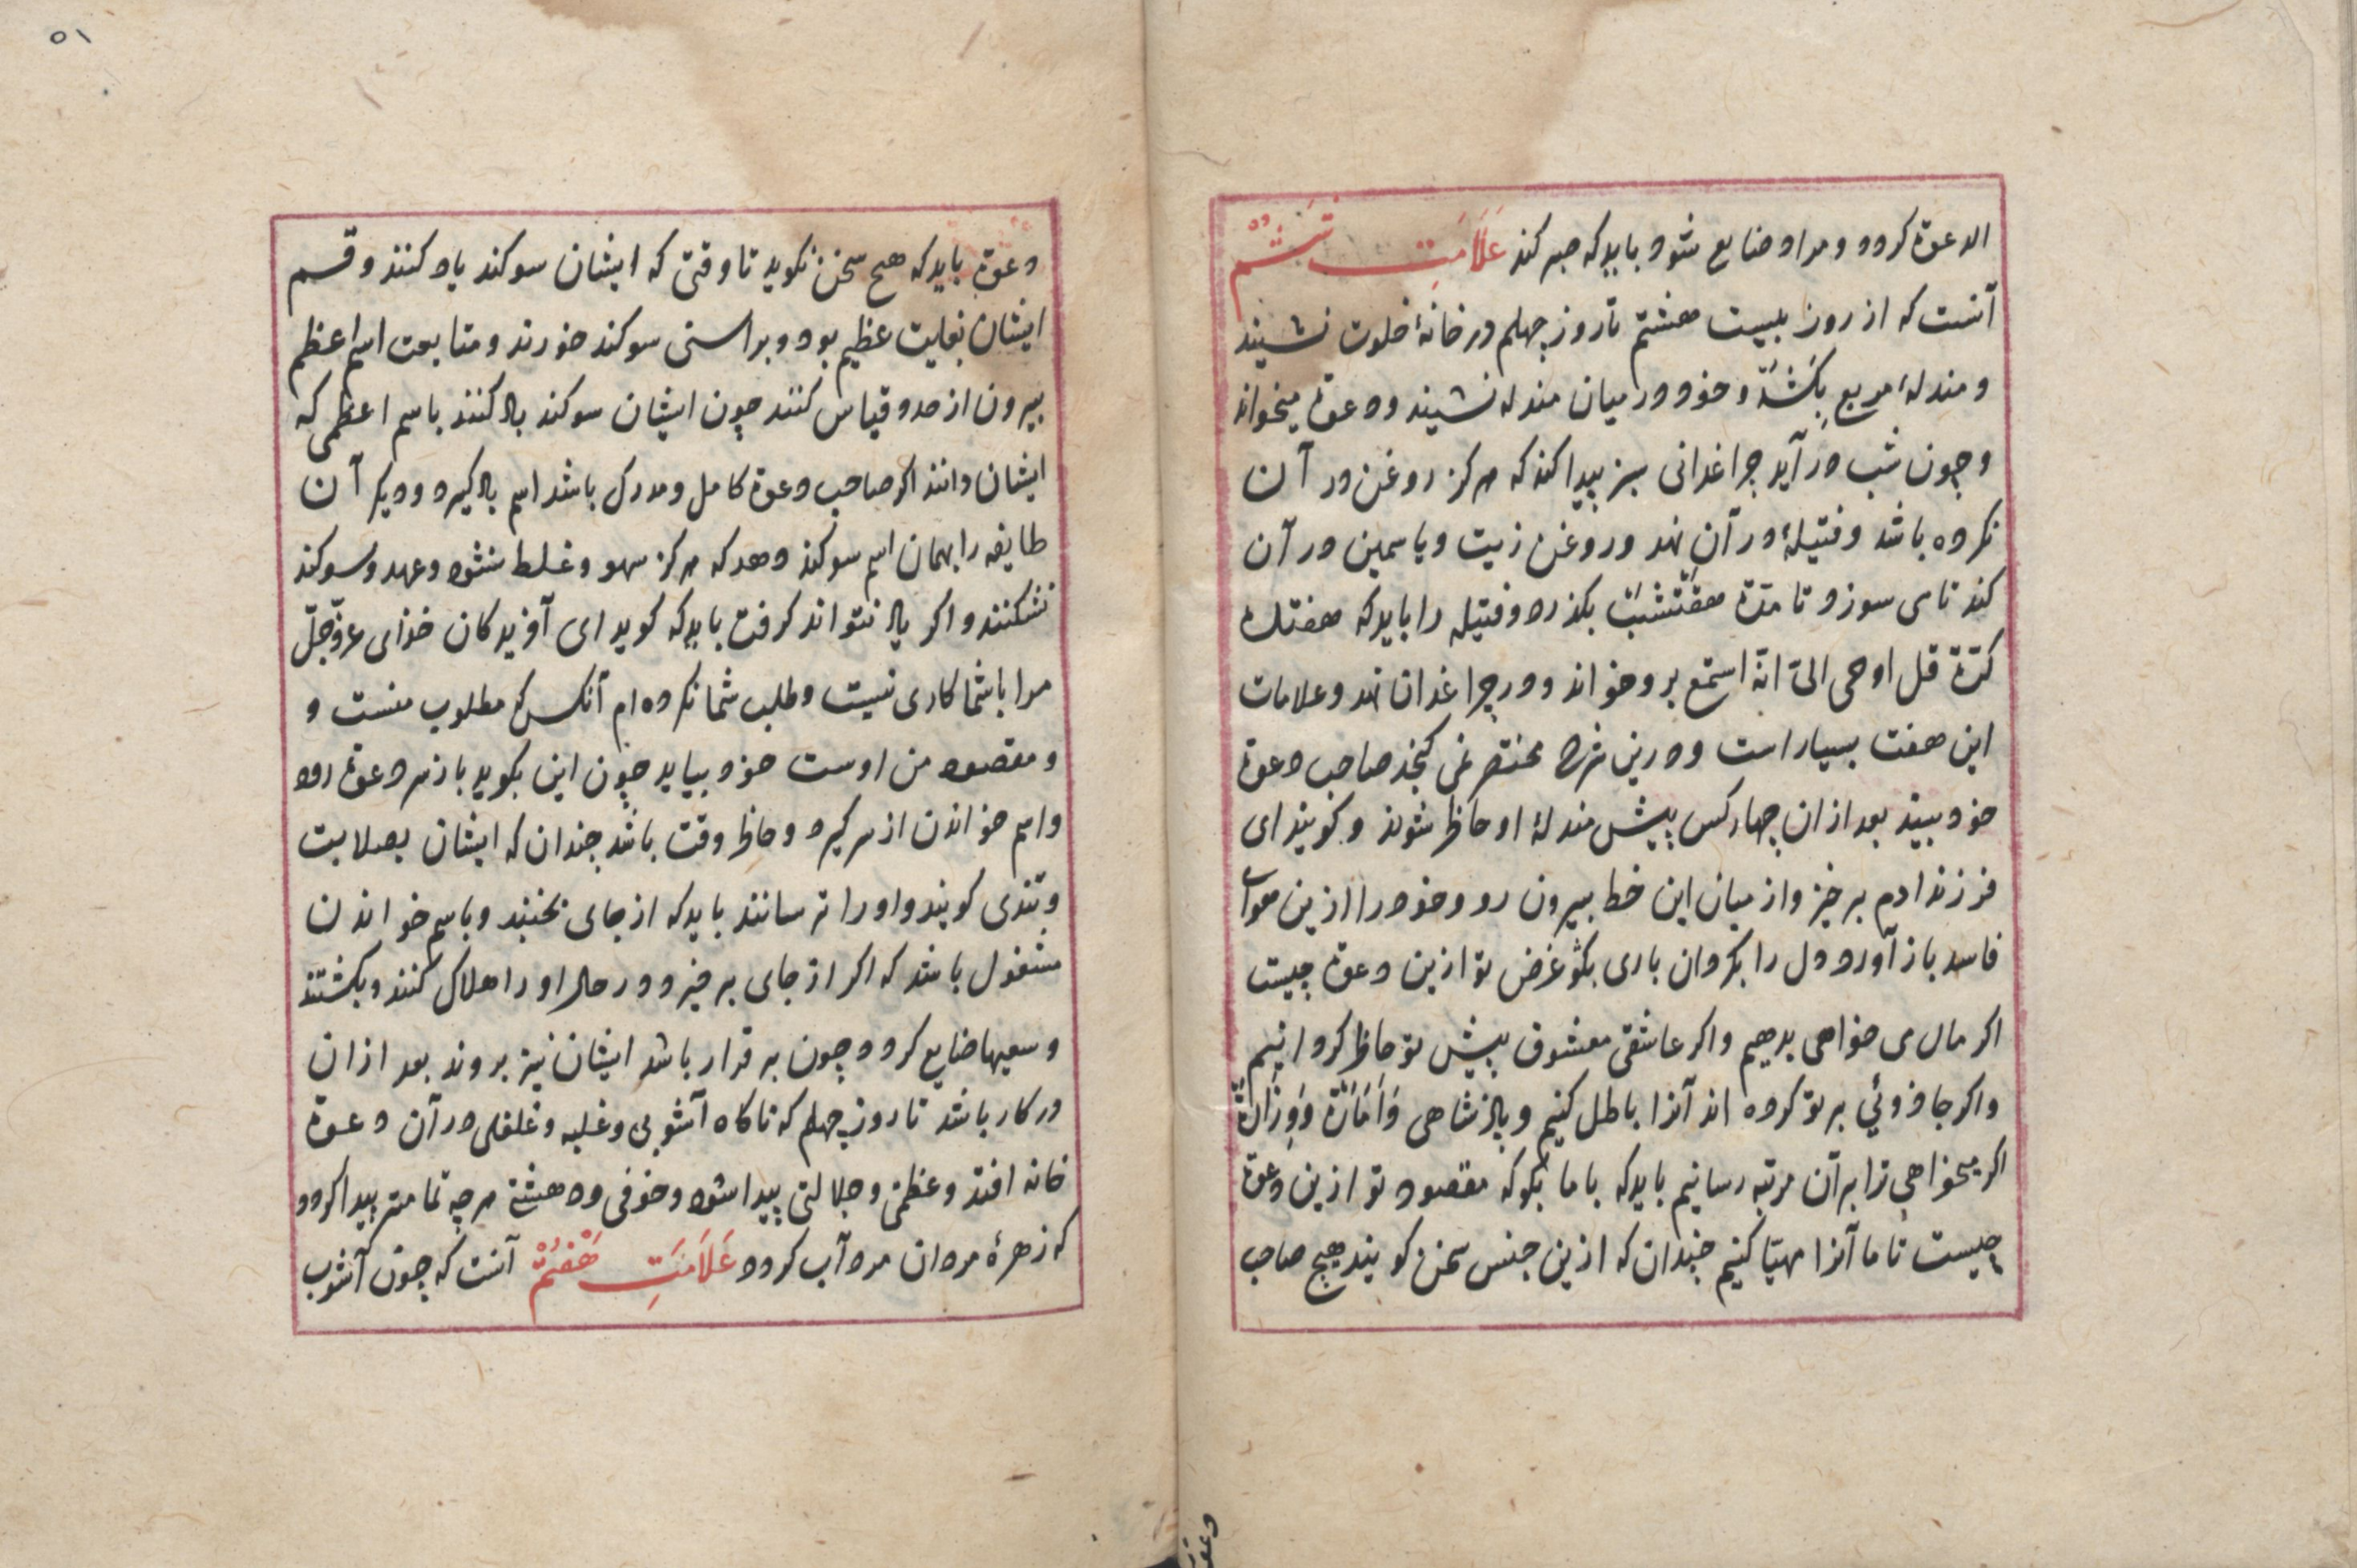 الدعوة کردد و مراد ضایع شود بابد که صبر کند عَلَامَتِ شَشُمْ
آنست که از روز بیست هفتم تا روز چهلم در خانهٔ خلوت نشیند
و مندلهٔ مربع بکشد و خود در میان مندله نشیند و دعوة میخواند
و چون شب در آید چراغدانی سبز پیدا کند که هرکز روغن در آن
نکرده باشد و فتیلهٔ در آن نهد و روغن زیت و یاسمین در آن
کند تا می سوزد تا مدة هفت شب بکذرد و فتیله را باید که هفتاد
کرّة قل اوحی الیّ انّه استمع برو خواند و در چراغدان نهد و علامات
این هفت بسیار است و درین شرح مختصر نمی کنجد صاحب دعوة
خود بیند بعد از آن چهار کس پیش مندلهٔ او حاظر شوند و کویند ای
فرزند ادم بر خیز و از میان این خط بیرون رو و خود را ازین هوای
فاسد باز آور و دل را بکردان باری بکو غرض تو ازین دعوة چیست
اکر مال می خواهی بدهیم و اکر عاشقی معشوق پیش تو حاظر کردانیم
و اکر جاذوئي بر تو کرده اند آنرا باطل کنیم و پاذشاهی وَاَمَارَة وَوِزَارَة
اکر میخواهي ترا بر آن مرتبه رسانیم باید که با ما بکو که مقصود تو ازین دعوة
چیست تا ما آنرا مهیّا کنیم چندان که ازین جنس سخن کویند هیچ صاحب
۵۱
دعوة باید که هیچ سخن نکوید تا وقتی که ایشان سوکند یاد کنند و قسم
ایشان بغایت عظیم بود و براستی سوکند خورند و متابعت اسم اعظم
بیرون از حد و قیاس کنند چون ایشان سوکند یاد کنند باسم اعظمی که
ایشان دانند اکر صاحب دعوة کامل و مدرک باشد اسم یاد کیرد و دیکر آن
طایفه را بهمان اسم سوکند دهد که هرکز سهو و غلط نشود و عهد و سوکند
نشکنند و اکر یاد نتواند کرفت باید که کوید ای آفریدکان خذای عزّ و جلّ
مرا با شما کاری نیست و طلب شما نکرده ام آنکس که مطلوب منست و
و مقصود من اوست خود بیاید چون این بکوید باز سر دعوة رود
و اسم خواندن از سر کیرد و حاظر وقت باشد چندان که ایشان بصلابت
و تندی کویند و او را ترسانند باید که از جای نجنبد و باسم خواندن
مشغول باشد که اکر از جای بر خیزد در حال او را هلاک کنند و بکشتند
و سعیها ضایع کردد چون بر قرار باشد ایشان نیز بروند بعد از آن
در کار باشد تا روز چهلم که ناکاه آشوبی و غلبه و غلغلی در آن دعوة
خانه افتد و عظمتی و جلالتی پیدا شود و خوفی و دهشتی هر چه تمامتر پیدا کردد
که زهرهٔ مردان مرد آب کردد عَلَامَتِ هَفْتُمْ آنست که چون آشوب